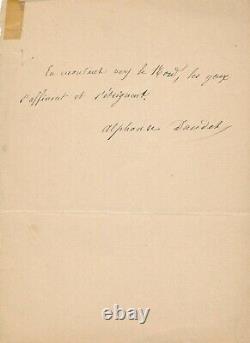 En montant vers le Nord, les yeux
s'affinent et s'éteignent.
Alphonse Daudet
ebay.com